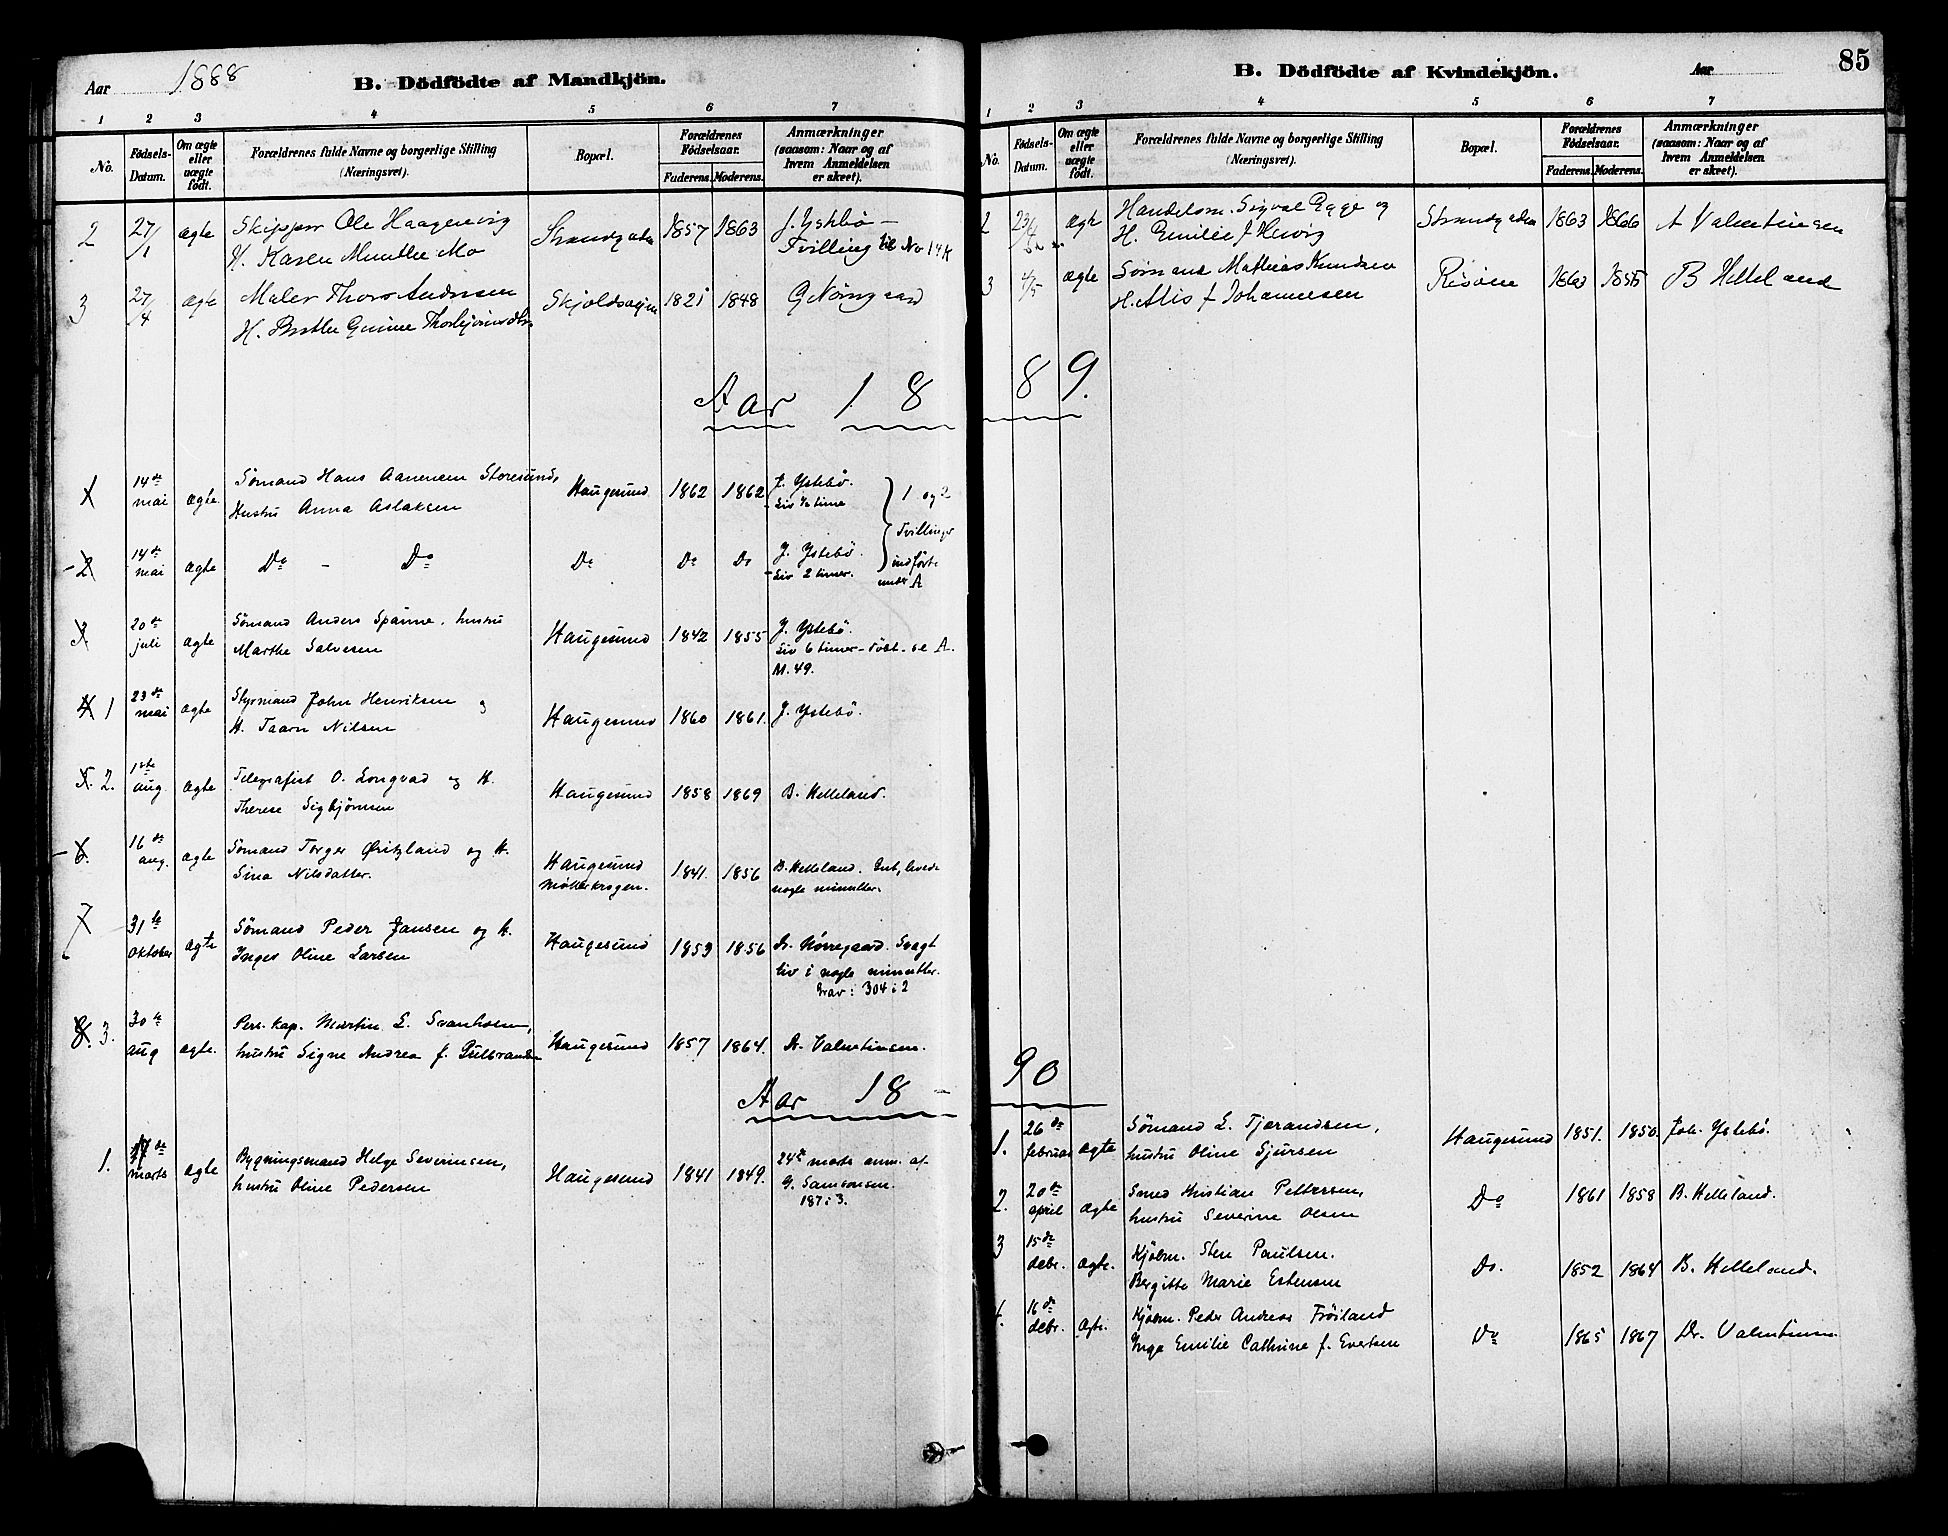 Aar 1888
B. Dödfödte af Mandkjön.
1 2 3 4 5 6 7
No. Födsels-Datum. Om ægte eller uægte födt. Forældrenes fulde Navne og borgerlige Stilling (Næringsvei). Bopæl. Forældrenes Födselsaar. Faderens. Moderens. Anmærkninger (saasom: Naar og af hvem Anmeldelsen er skeet).
2 27/1 ægte Skipper Ole Haagenvig Strandgaten 1857 1863 J. Ystebø -
H. Karen Munthe Mo Tvilling til No 14 K
3 27/4 ægte Maler Thore Andersen Skjoldsogn 1821 1848 G Nörregaard
H. Berthe Gunne Thorbjörnsdtr
Aar 18
1 14de mai ægte Sömand Hans Aanensen Storesund, Haugesund 1862 1862 J. Ystebø. } 1 og 2
Hustru Anna Aslaksen Liv ½ time Tvillinger
2 14de mai ægte Do - Do Do Do Do J. Ystebø. indförte
Liv 2 timer. under A
3 20de juli ægte Sömand Anders Spanne, hustru Haugesund 1842 1855 J. Ystebö.
Marthe Salvesen Liv 6 timer - födt. se A.
M. 49.
4 1 23de mai ægte Styrmand John Henriksen og Haugesund 1860 1861. J. Ystebö.
H. Taarn Nilsen
5. 2. 1ste aug. ægte Telegrafist O. Longvad og H. Haugesund 1858 1869 B. Helleland.
Therese Sigbjörnsen
6. 16de aug. ægte Sömand Torger Øritsland og H. Haugesund 1841. 1856 B. Helleland. Gut, levede
Sina Nilsdatter. Møllerkrogen. nogle minutter.
7 31te oktober ægte Sömand Peder Jansen og H. Haugesund 1859 1856 Dr. Nörregaard. Svagt
Inger Oline Larsen liv i nogle minutter.
Grav: 304 i 2
8. 3. 30te aug ægte. Pers. kap. Martin L. Svanholm, Haugesund 1857 1864. Dr. Valentinsen.
hustru Signe Andrea f. Gulbrandsen
Aar 18 -
1. 17de marts ægte Bygningsmand Helge Severinsen, Haugesund 1841 1849. 24de marts anm. af
hustru Oline Pedersen G. Samsonsen.
187 i 3.
B. Dödfödte af Kvindekjön. Aar 85
1 2 3 4 5 6 7
No. Födsels-Datum. Om ægte eller uægte födt. Forældrenes fulde Navne og borgerlige Stilling (Næringsvei). Bopæl. Forældrenes Födselsaar. Faderens. Moderens. Anmærkninger (saasom: Naar og af hvem Anmeldelsen er skeet).
2 23/4 ægte Handelsm. Sigval Egge og Strandgaden 1863 1866 A Valentinsen
H. Emilie f Hervig
3 4/5 ægte Sömand Mathias Knudsen Risöen 1863 1855 B Helleland
H. Alis f Johannesen
89.
90
1. 26de februar ægte Sömand L. Tjerandsen, Haugesund 1851. 1850. Joh. Ystebø.
hustru Oline Sjursen
2. 20de april ægte Smed Kristian Pettersen, Do 1861 1858 B. Helleland.
hustru Severine Olsen
3 15de debr. ægte. Kjöbm. Sten Paulsen. Do. 1852 1864 B. Helleland.
Bergitte Marie Estensen
4. 16de debr. ægte. Kjöbm. Peder Andreas Fröiland Do 1865 1867 Dr. Valentinsen
Inga Emilie Cathrine f. Evertsen